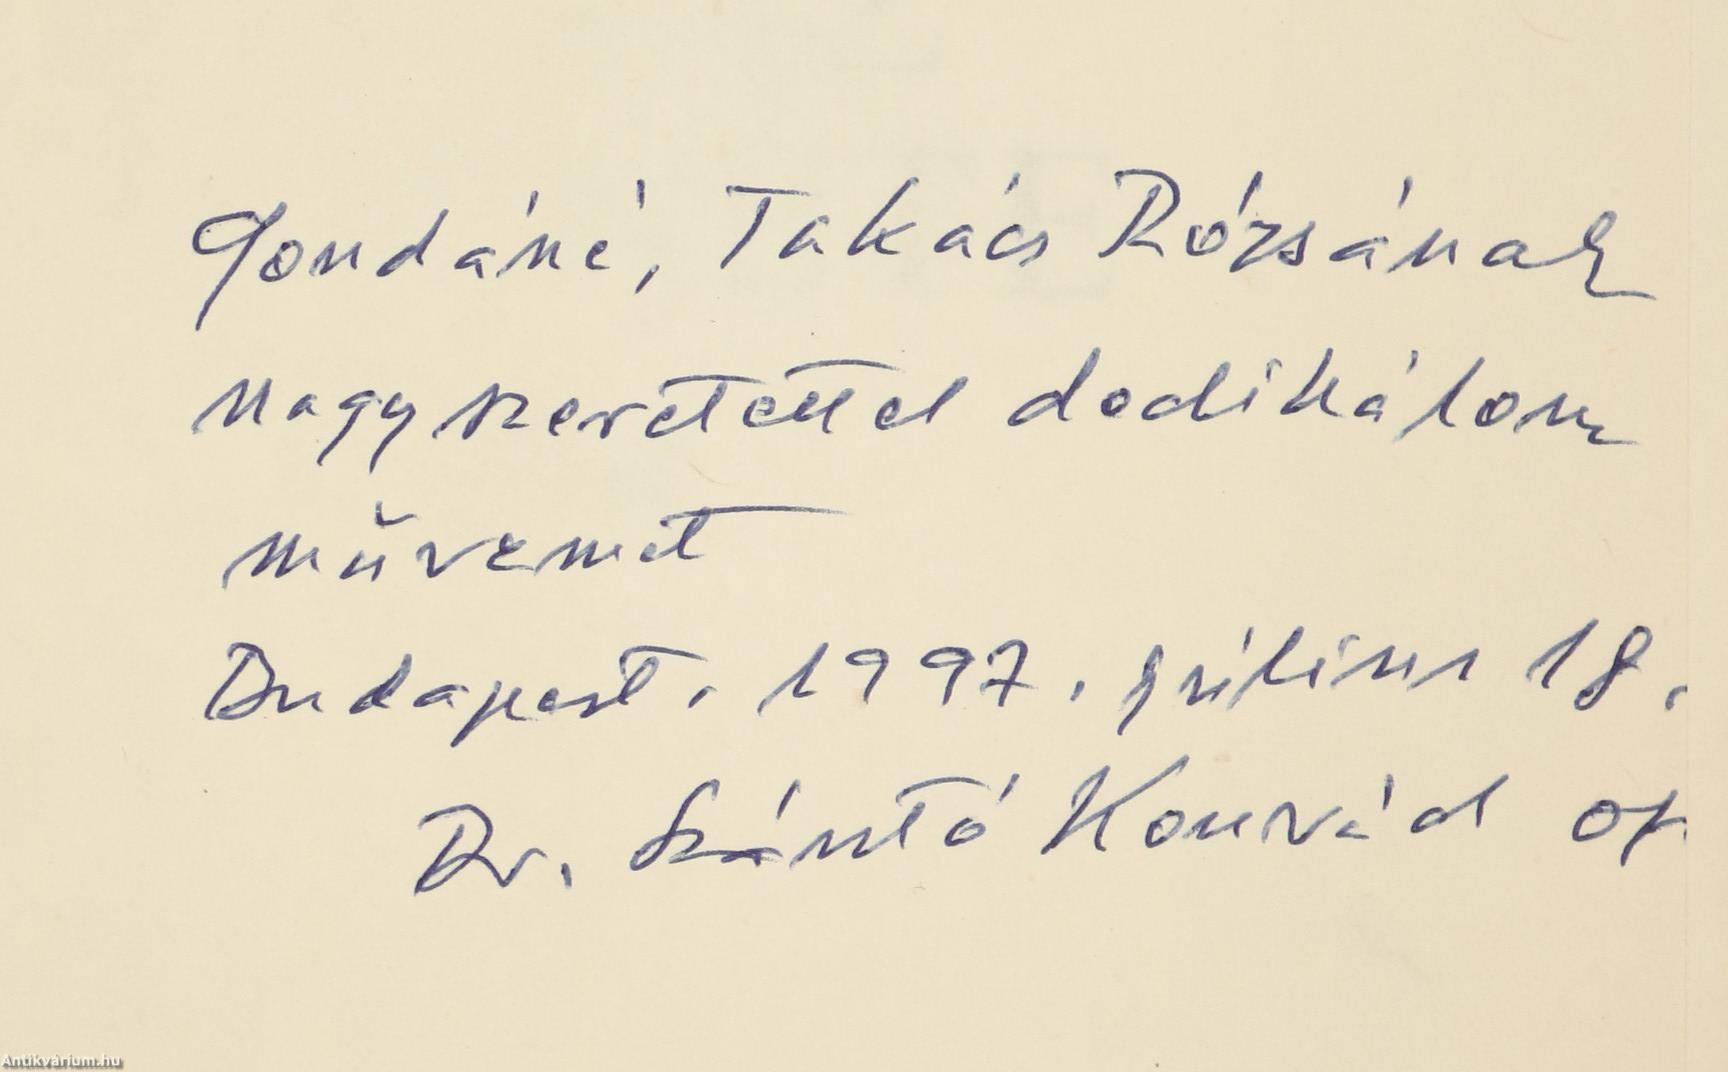 Gondáné, Takács Rózsának
nagy szeretettel dedikálom
művemet
Budapest. 1997. július 18.
Dr. Szántó Konrád of
Antikvárium.hu